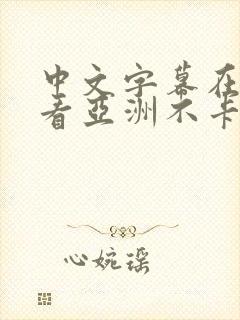 中文字幕在
看亚洲不卡
心婉瑶